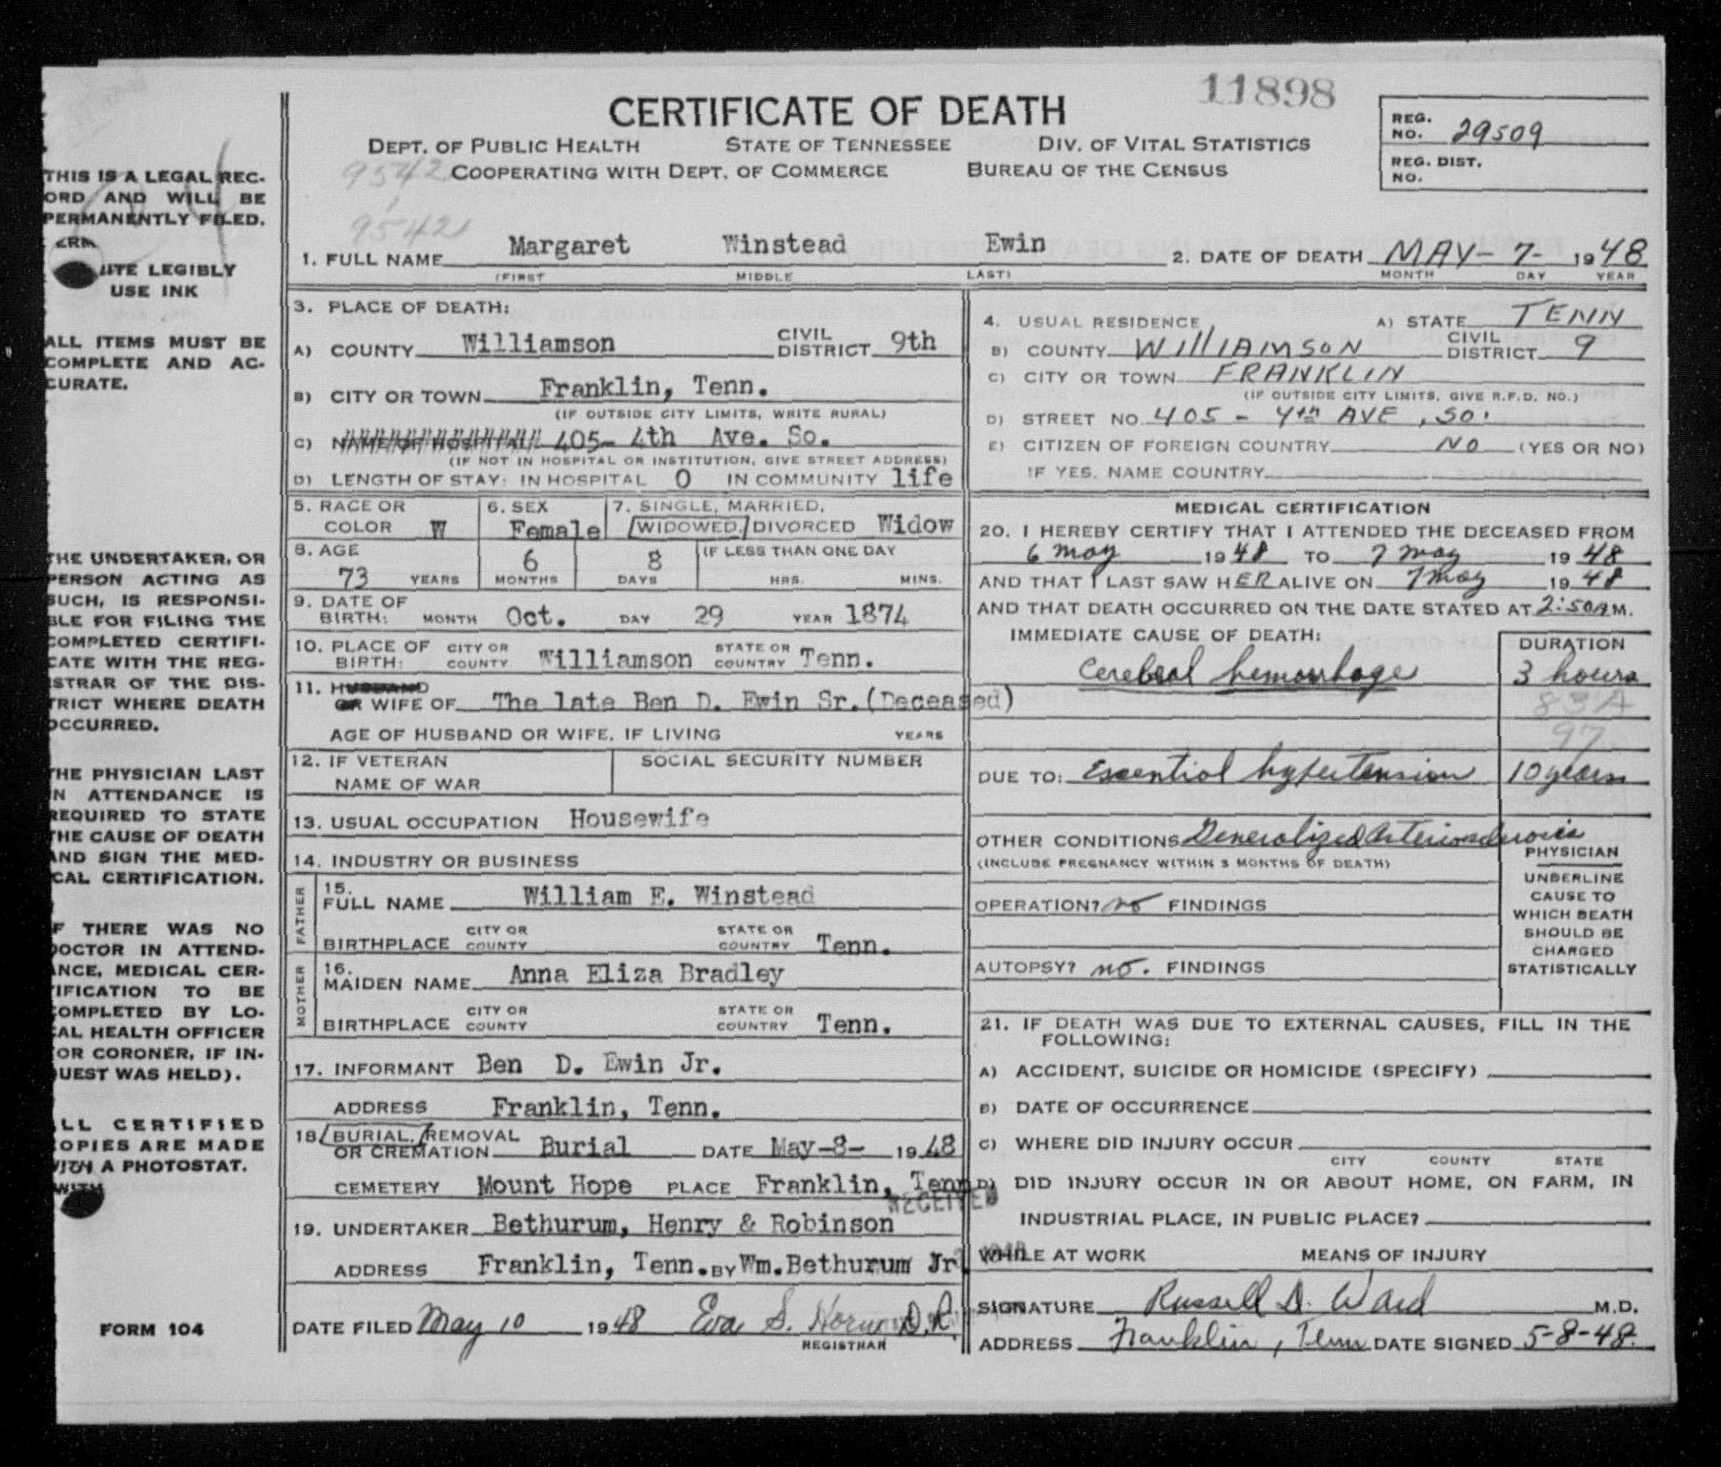 11898
CERTIFICATE OF DEATH
DEPT. OF PUBLIC HEALTH STATE OF TENNESSEE DIV. OF VITAL STATISTICS
COOPERATING WITH DEPT. OF COMMERCE BUREAU OF THE CENSUS
REG. NO. 29509
REG. DIST. NO.
9542
9542
24
THIS IS A LEGAL REC-
ORD AND WILL BE
PERMANENTLY FILED.
LEGIBLY
USE INK
ALL ITEMS MUST BE
COMPLETE AND AC-
CURATE.
THE UNDERTAKER, OR
PERSON ACTING AS
SUCH, IS RESPONSI-
BLE FOR FILING THE
COMPLETED CERTIFI-
CATE WITH THE REG-
ISTRAR OF THE DIS-
TRICT WHERE DEATH
OCCURRED.
THE PHYSICIAN LAST
IN ATTENDANCE IS
REQUIRED TO STATE
THE CAUSE OF DEATH
AND SIGN THE MED-
ICAL CERTIFICATION.
IF THERE WAS NO
DOCTOR IN ATTEND-
ANCE, MEDICAL CER-
TIFICATION TO BE
COMPLETED BY LO-
CAL HEALTH OFFICER
(OR CORONER, IF IN-
QUEST WAS HELD).
ALL CERTIFIED
COPIES ARE MADE
WITH A PHOTOSTAT.
FORM 104
1. FULL NAME Margaret Winstead Ewin
(FIRST MIDDLE LAST)
2. DATE OF DEATH MAY - 7 - 1948
MONTH DAY YEAR
3. PLACE OF DEATH:
A) COUNTY Williamson CIVIL DISTRICT 9th
B) CITY OR TOWN Franklin, Tenn.
(IF OUTSIDE CITY LIMITS, WRITE RURAL)
C) NAME OF HOSPITAL 405- 4th Ave. So.
(IF NOT IN HOSPITAL OR INSTITUTION, GIVE STREET ADDRESS)
D) LENGTH OF STAY: IN HOSPITAL 0 IN COMMUNITY life
5. RACE OR COLOR W
6. SEX Female
7. SINGLE, MARRIED, WIDOWED, DIVORCED Widow
8. AGE 73 YEARS 6 MONTHS 8 DAYS IF LESS THAN ONE DAY HRS. MINS.
9. DATE OF BIRTH: MONTH Oct. DAY 29 YEAR 1874
10. PLACE OF BIRTH: CITY OR COUNTY Williamson STATE OR COUNTRY Tenn.
11. HUSBAND OR WIFE OF The late Ben D. Ewin Sr.(Deceased)
AGE OF HUSBAND OR WIFE, IF LIVING YEARS
12. IF VETERAN NAME OF WAR SOCIAL SECURITY NUMBER
13. USUAL OCCUPATION Housewife
14. INDUSTRY OR BUSINESS
FATHER
15. FULL NAME William E. Winstead
BIRTHPLACE CITY OR COUNTY STATE OR COUNTRY Tenn.
MOTHER
16. MAIDEN NAME Anna Eliza Bradley
BIRTHPLACE CITY OR COUNTY STATE OR COUNTRY Tenn.
17. INFORMANT Ben D. Ewin Jr.
ADDRESS Franklin, Tenn.
18 BURIAL, REMOVAL OR CREMATION Burial DATE May-8- 1948
CEMETERY Mount Hope PLACE Franklin, Tenn
RECEIVED
19. UNDERTAKER Bethurum, Henry & Robinson
ADDRESS Franklin, Tenn. BY Wm.Bethurum Jr.
DATE FILED May 10 1948 Eva S. D.R.
REGISTRAR
4. USUAL RESIDENCE A) STATE TENN
B) COUNTY WILLIAMSON CIVIL DISTRICT 9
C) CITY OR TOWN FRANKLIN
(IF OUTSIDE CITY LIMITS, GIVE R.F.D. NO.)
D) STREET NO. 405 - 4th AVE, SO.
E) CITIZEN OF FOREIGN COUNTRY NO (YES OR NO)
IF YES, NAME COUNTRY
MEDICAL CERTIFICATION
20. I HEREBY CERTIFY THAT I ATTENDED THE DECEASED FROM
6 May 1948 TO 7 May 1948
AND THAT I LAST SAW HER ALIVE ON 7 May 1948
AND THAT DEATH OCCURRED ON THE DATE STATED AT 2:50 A M.
IMMEDIATE CAUSE OF DEATH: DURATION
Cerebral hemorrhage 3 hours
83A
97
DUE TO: Essential hypertension 10 years
OTHER CONDITIONS Generalized Arteriosclerosis
(INCLUDE PREGNANCY WITHIN 3 MONTHS OF DEATH)
OPERATION? no FINDINGS
AUTOPSY? no. FINDINGS
PHYSICIAN
UNDERLINE
CAUSE TO
WHICH DEATH
SHOULD BE
CHARGED
STATISTICALLY
21. IF DEATH WAS DUE TO EXTERNAL CAUSES, FILL IN THE
FOLLOWING:
A) ACCIDENT, SUICIDE OR HOMICIDE (SPECIFY)
B) DATE OF OCCURRENCE
C) WHERE DID INJURY OCCUR
CITY COUNTY STATE
D) DID INJURY OCCUR IN OR ABOUT HOME, ON FARM, IN
INDUSTRIAL PLACE, IN PUBLIC PLACE?
WHILE AT WORK MEANS OF INJURY
SIGNATURE Russell D. Ward M.D.
ADDRESS Franklin, Tenn DATE SIGNED 5-8-48.